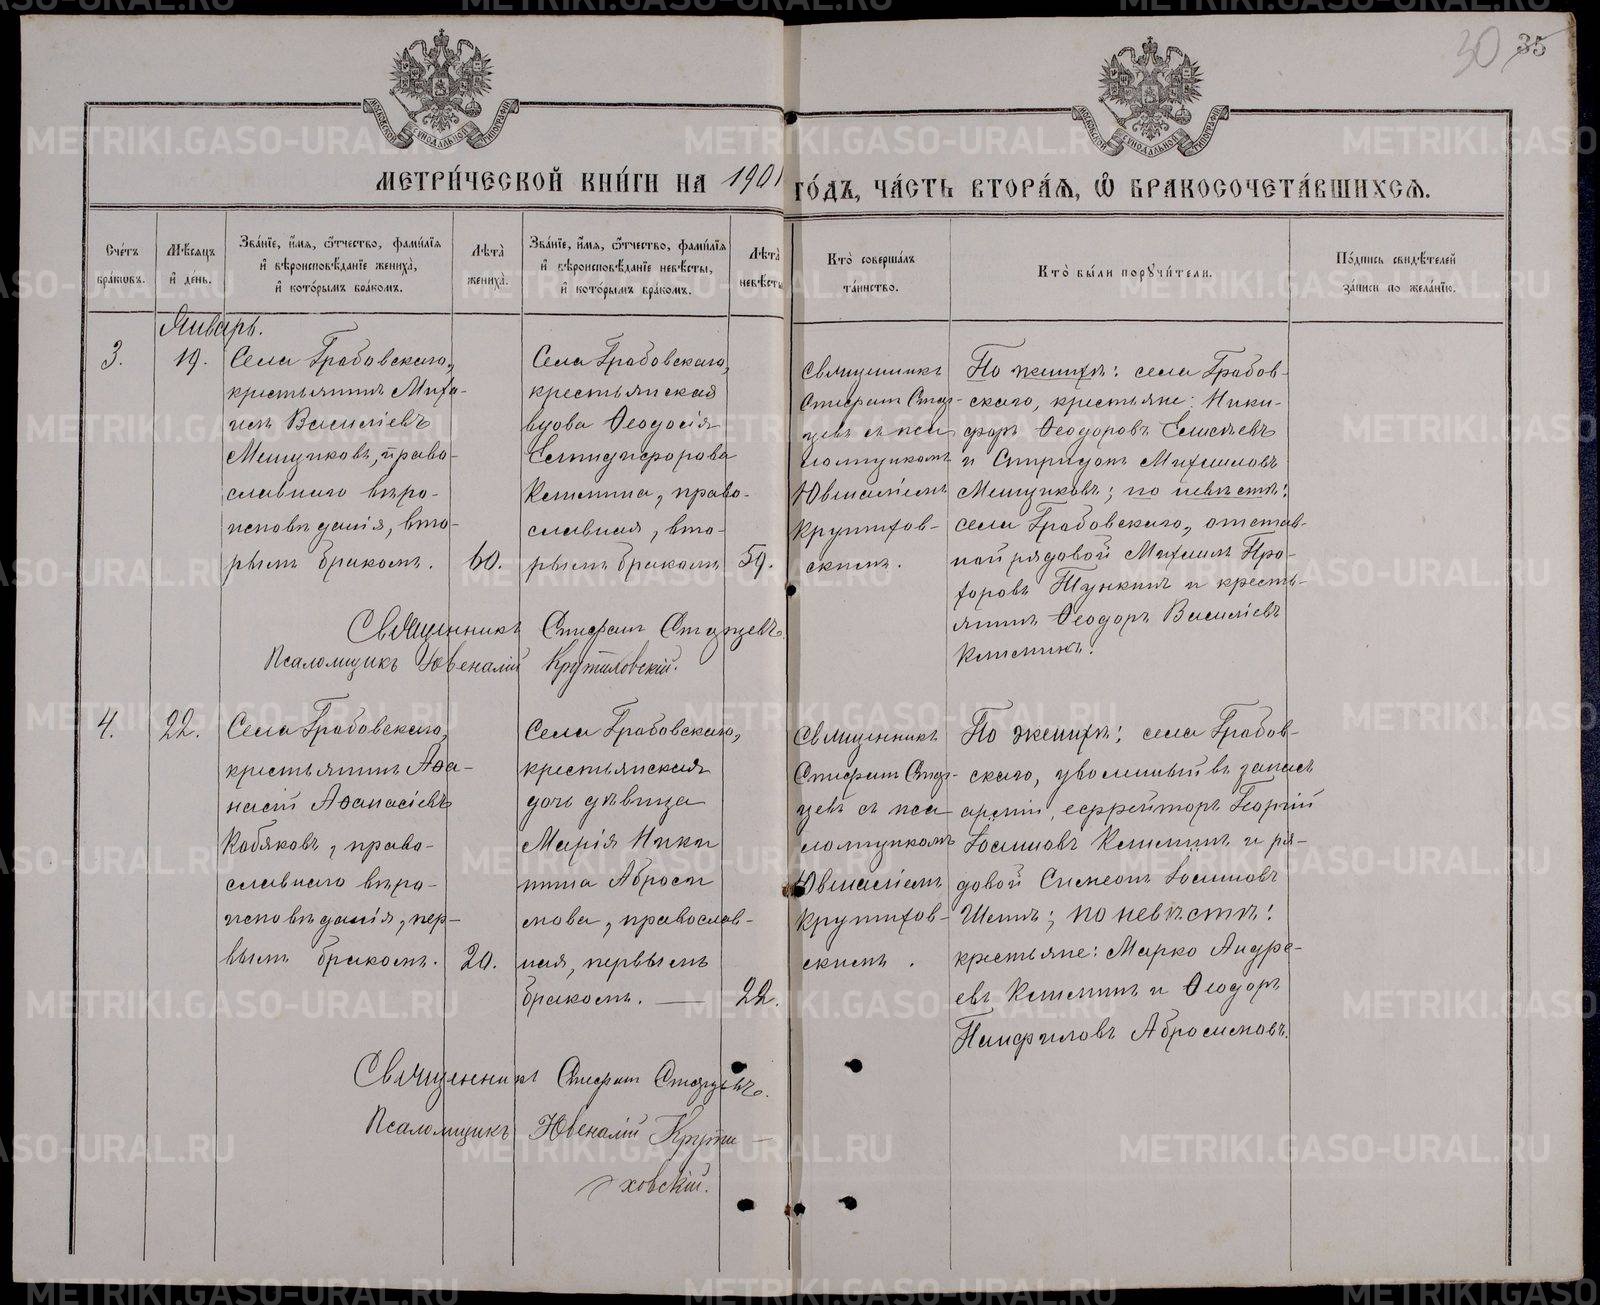 30 35
МОСКОВСКОЙ СИНОДАЛЬНОЙ ТИПОГРАФІИ
МОСКОВСКОЙ СИНОДАЛЬНОЙ ТИПОГРАФІИ
МЕТРИ́ЧЕСКОЙ КНИ́ГИ НА 1901 ГО́ДЪ, ЧА́СТЬ ВТОРА́Я, Ѡ БРАКОСОЧЕТА́ВШИХСЯ.
Сче́тъ
бра́ковъ.
Мѣ́сяцъ
и҆ де́нь.
Зва́нїе, и҆́мя, ѻ҆́тчество, фами́лїя
и҆ вѣроисповѣ́данїе жениха̀,
и҆ кото́рымъ бра́комъ.
Лѣта̀
жениха̀.
Зва́нїе, и҆́мя, ѻ҆́тчество, фами́лїя
и҆ вѣроисповѣ́данїе невѣ́сты,
и҆ кото́рымъ бра́комъ.
Лѣта̀
невѣ́сты
Кто̀ соверша́лъ
та́инство.
Кто̀ бы́ли поручи́тели.
По́дпись свидѣ́телей
за́писи по жела́нїю.
Январь.
3.
19.
Села Грабовскаго,
крестьянинъ Миха-
илъ Василіевъ
Мешуковъ, право-
славнаго вѣро-
исповѣданія, вто-
рымъ бракомъ.
60.
Села Грабовскаго,
крестьянская
вдова Ѳеодосія
Елпидифорова
православная, вто-
рымъ бракомъ
59.
Священникъ
Стефанъ Стар-
цевъ съ пса
ломщикомъ
Ювеналіемъ
Крутихов-
скимъ.
По женихѣ: села Грабов-
скаго, крестьяне: Ники-
форъ Ѳеодоровъ Елисѣевъ
и Спиридонъ Михаиловъ
Мешуковъ; по невѣстѣ:
села Грабовскаго, отстав-
ной рядовой Михаилъ Про-
хоровъ и кресть-
янинъ Ѳеодоръ Василіевъ
Священникъ Стефанъ Старцевъ.
Псаломщикъ Ювеналій Крутиховскій.
4.
22.
Села Грабовскаго,
крестьянинъ Аѳа-
насій Аѳанасіевъ
Кобяковъ, право-
славнаго вѣро-
исповѣданія, пер-
вымъ бракомъ.
20.
Села Грабовскаго,
крестьянская
дочь дѣвица
Марія Ники
тина Аброси
мова, православ-
ная, первымъ
бракомъ. —
22.
Священникъ
Стефанъ Стар-
цевъ съ пса
ломщикомъ
Ювеналіемъ
Крутихов-
скимъ.
По женихѣ: села Грабов-
скаго, уволенный въ запасъ
арміи, ефрейторъ Георгій
Іосифовъ и ря-
довой Симеонъ Іосифовъ
по невѣстѣ:
крестьяне: Марко Андре-
евъ и Ѳеодоръ
Памфиловъ Абросимовъ.
Священникъ Стефанъ Старцевъ.
Псаломщикъ Ювеналій Крути-
ховскій.
METRIKI.GASO-URAL.RU